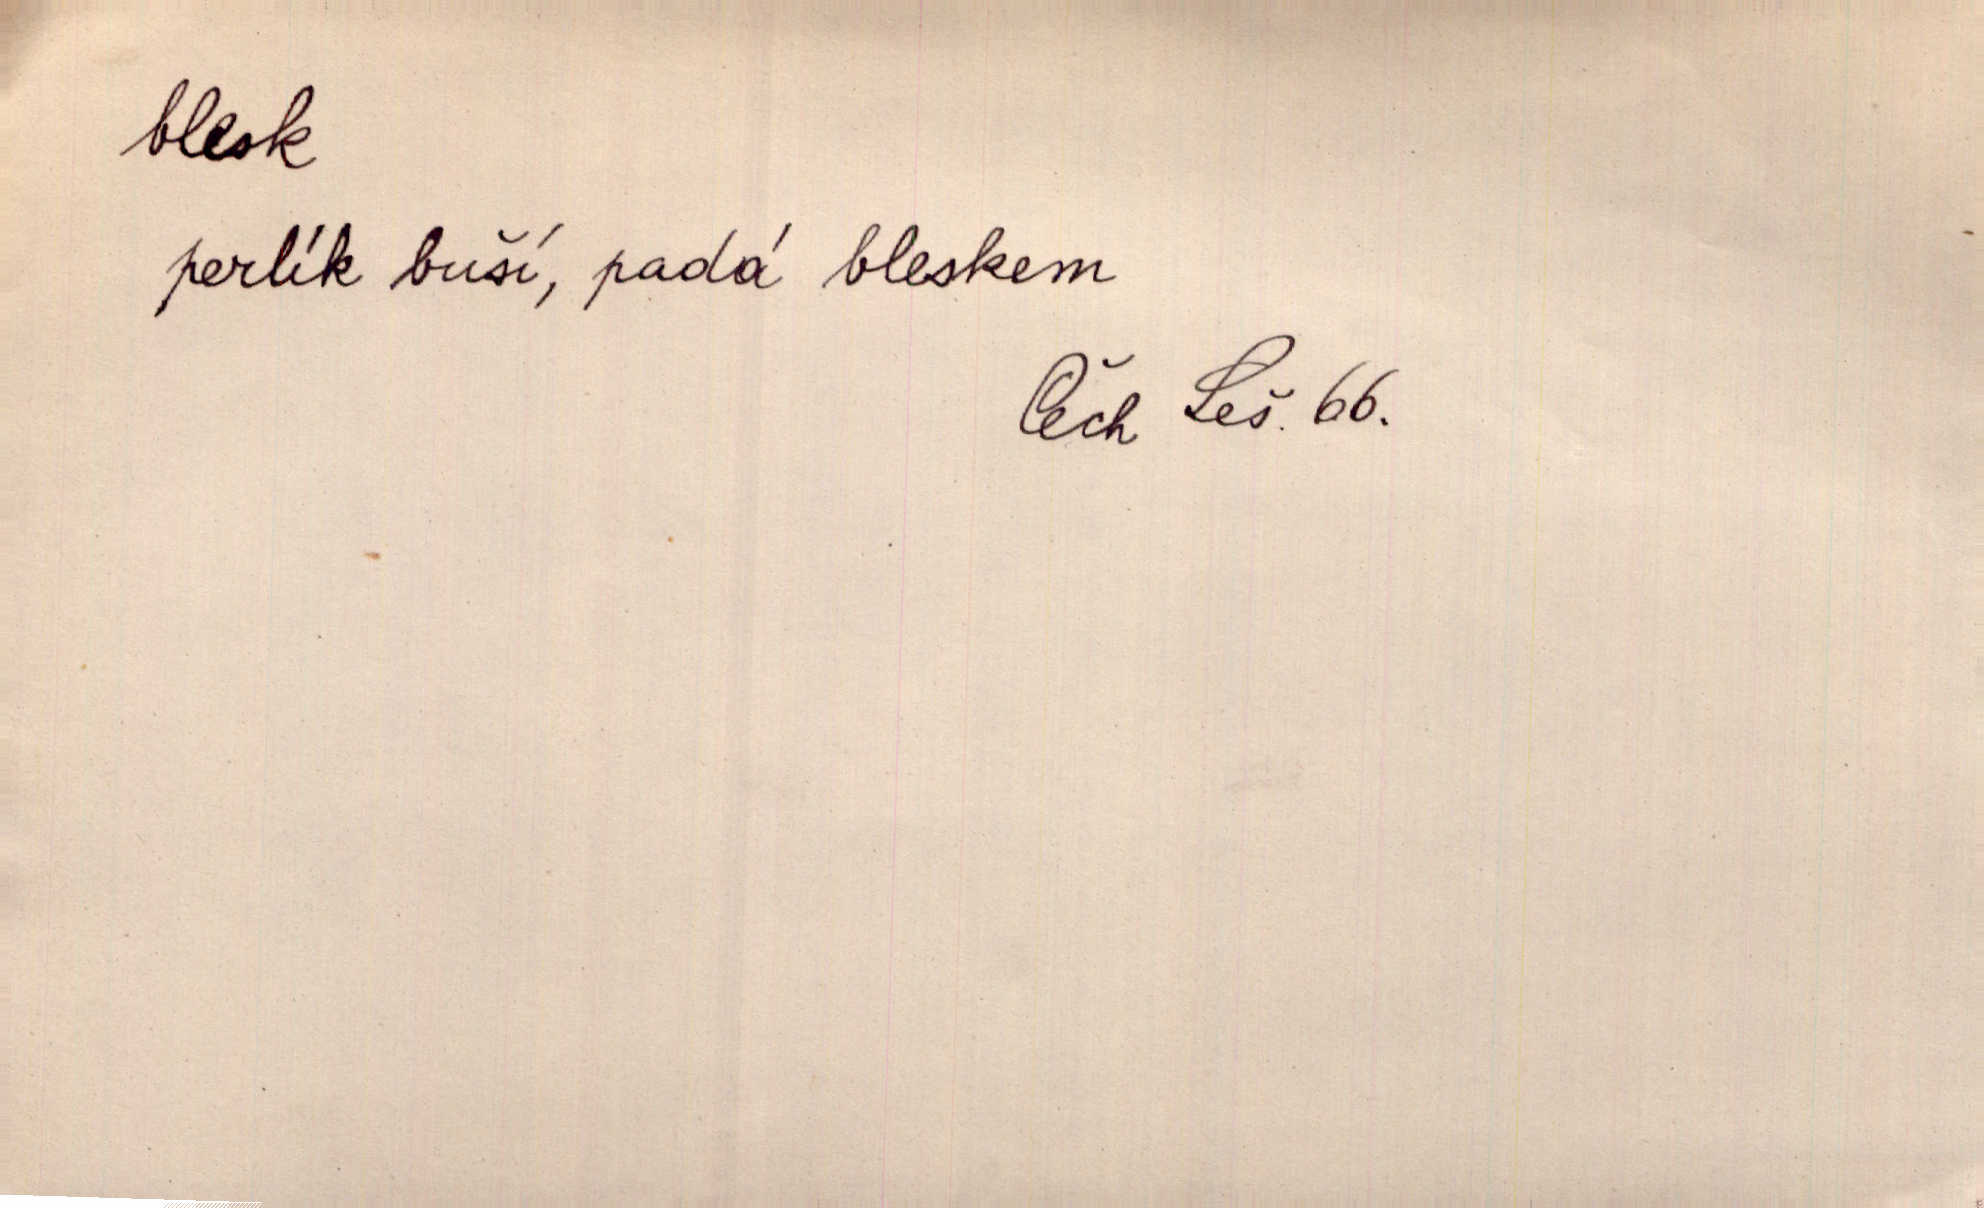 blesk
perlík buší, padá bleskem
Čech Leš. 66.